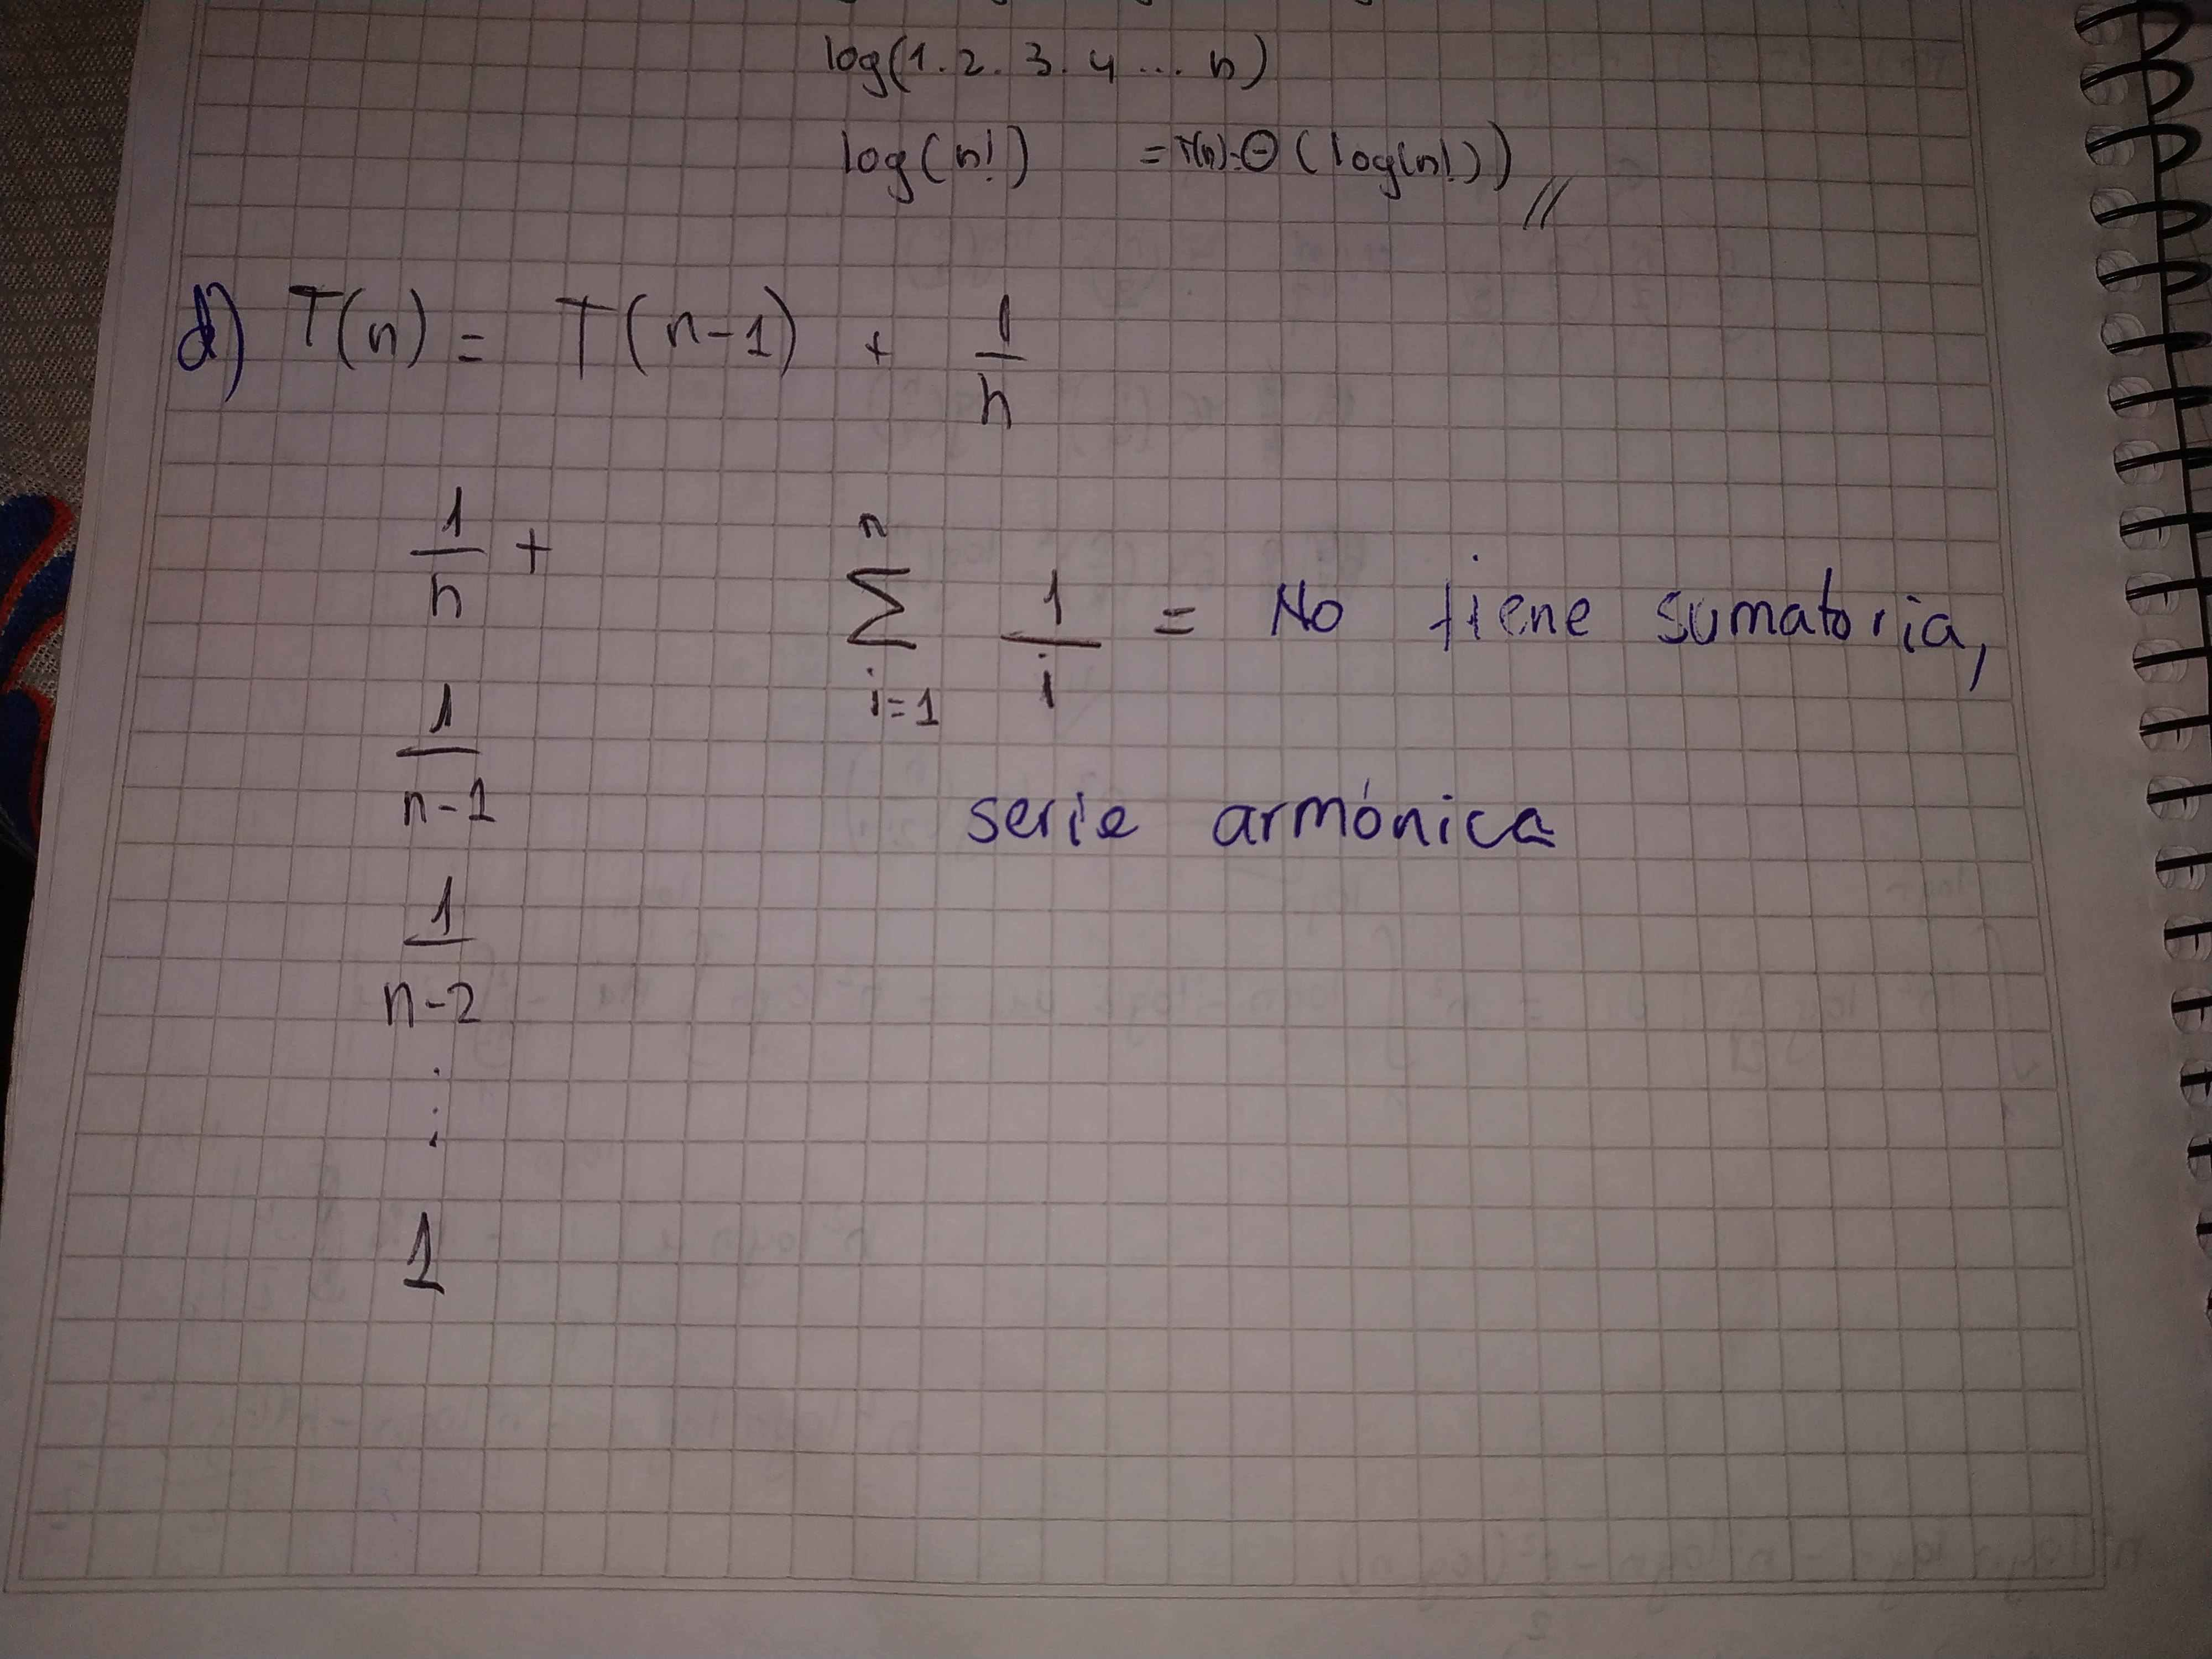 log(1·2·3·4 ... n)
log(n!) = T(n)=Θ(log(n!)) //
d) T(n) = T(n-1) + 1/n
1/n +
1/n-1
1/n-2
⋮
1
n
∑ 1/i = No tiene sumatoria,
i=1
serie armónica